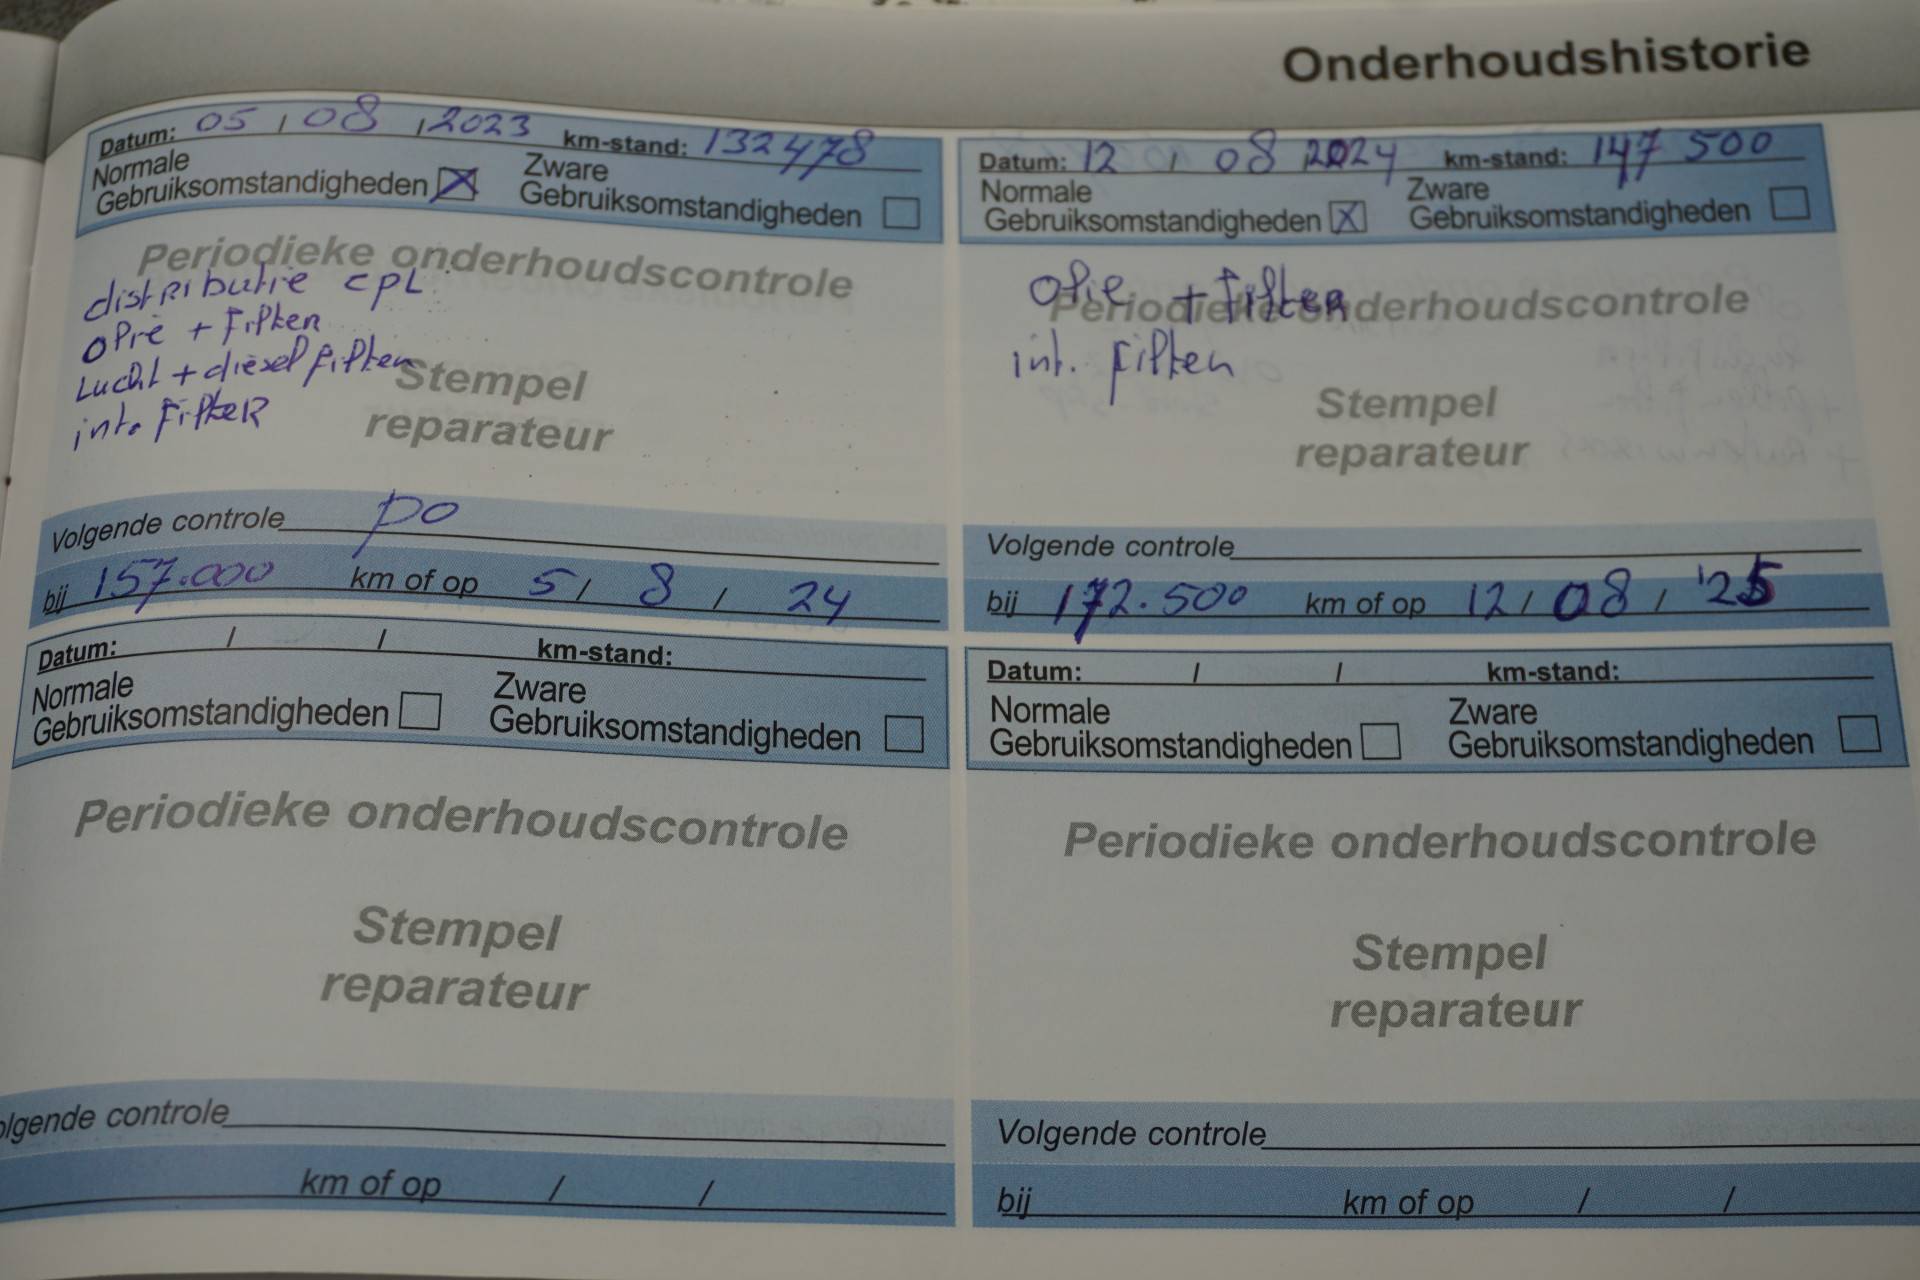 Onderhoudshistorie
Datum: 05 / 08 / 2023 km-stand: 132478
Normale
Gebruiksomstandigheden X
Zware
Gebruiksomstandigheden
Periodieke onderhoudscontrole
distributie cpl.
olie + Filter
Lucht + diesel filter
int. Filter
Stempel
reparateur
Volgende controle po
bij 157.000 km of op 5 / 8 / 24
Datum: 12 / 08 / 2024 km-stand: 147 500
Normale
Gebruiksomstandigheden X
Zware
Gebruiksomstandigheden
olie + filter
Periodieke onderhoudscontrole
int. Filter
Stempel
reparateur
Volgende controle
bij 172.500 km of op 12 / 08 / '25
Datum: / / km-stand:
Normale
Gebruiksomstandigheden
Zware
Gebruiksomstandigheden
Periodieke onderhoudscontrole
Stempel
reparateur
olgende controle
km of op / /
Datum: / / km-stand:
Normale
Gebruiksomstandigheden
Zware
Gebruiksomstandigheden
Periodieke onderhoudscontrole
Stempel
reparateur
Volgende controle
bij km of op / /